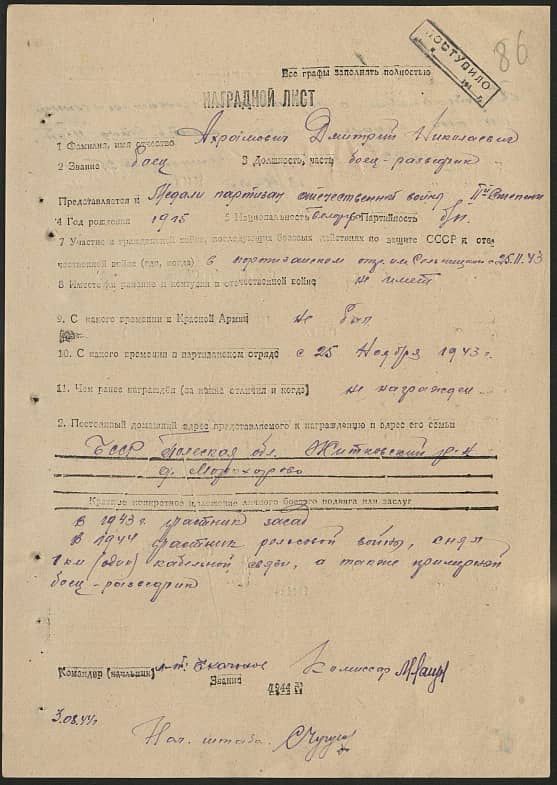 ПОСТУПИЛО
86
Все графы заполнять полностью
НАГРАДНОЙ ЛИСТ
1 Фамилия, имя отчество Ахраймович Дмитрий Николаевич
2 Звание боец 3 Должность, часть боец-разведчик
Представляется к Медали партизан отечественной войны IIой степени
4 Год рождения 1915 5 Национальность белорус Партийность б/п.
7 Участие в гражданской войне, последующих боевых действиях по защите СССР и оте-
чественной войне (где, когда) в партизанском отр. им. с 25.11.43
8 Имеет ли ранения и контузии в отечественной войне не имеет
9. С какого времени в Красной Армии не был
10. С какого времени в партизанском отряде с 25 Ноября 1943 г.
11. Чем ранее награждён (за какие отличия и когда) не награжден
2. Постоянный домашний адрес представляемого к награждению и адрес его семьи
БССР Полеская обл. Житковский р-н
д.
Краткое конкретное изложение личного боевого подвига или заслуг
В 1943 г. участник засад
В 1944 участник рельсовой войны, снял
1 км (один) кабельной связи, а также примерный
боец-разведчик
Командир (начальник) л-т. Комиссар
Звание
1944 г.
3.08.44 г.
Нач. штаба